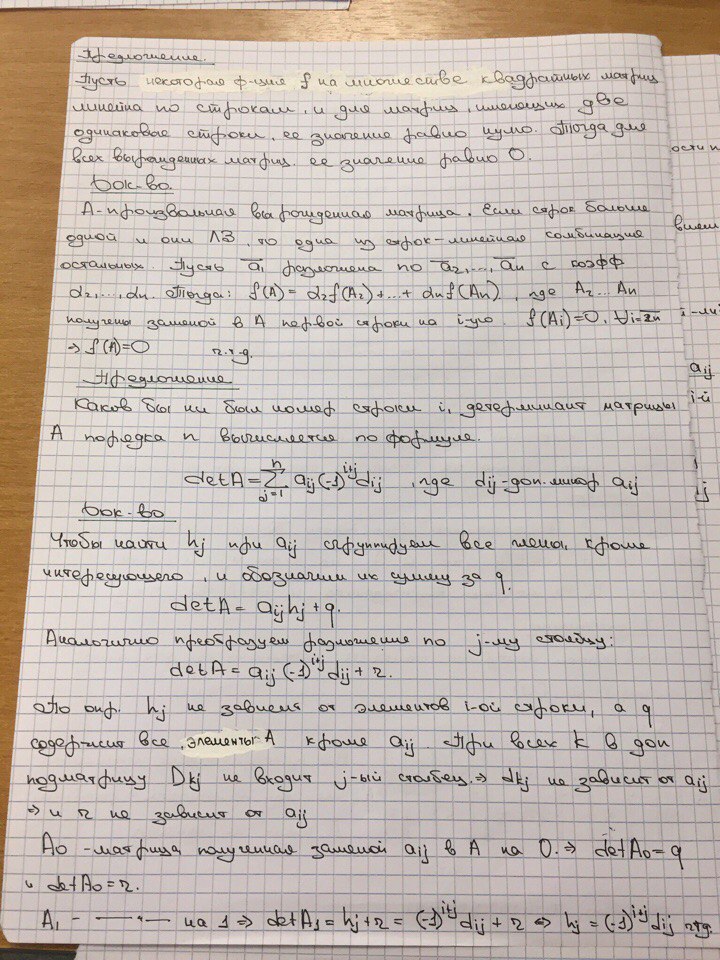 Предложение.
Пусть некоторая ф-ция f на множестве квадратных матриц
линейна по строкам, и для матриц, имеющих две
одинаковые строки, ее значение равно нулю. Тогда для
всех вырожденных матриц ее значение равно 0.
Док-во.
A-произвольная вырожденная матрица. Если строк больше
одной и они ЛЗ, то одна из строк-линейная комбинация
остальных. Пусть a̅₁ разложена по a̅₂,...,a̅n с коэфф
α₂,...,αn. Тогда: f(A)=α₂f(A₂)+...+αnf(An), где A₂...An
получены заменой в A первой строки на i-ую. f(Ai)=0, ∀i=2̅n̅
⇒ f(A)=0 ч.т.д.
Предложение
Каков бы ни был номер строки i, детерминант матрицы
A порядка n вычисляется по формуле.
detA=∑ⁿⱼ₌₁ aij(-1)^{i+j}dij, где dij-доп. минор aij
Док-во
Чтобы найти hj при aij сгруппируем все члены, кроме
интересующего, и обозначим их сумму за q.
detA=aijhj+q.
Аналогично преобразуем разложение по j-му столбцу:
detA=aij(-1)^{i+j}dij+r.
По опр. hj не зависит от элементов i-ой строки, а q
содержит все элементы A кроме aij. При всех k в доп
подматрицу Dkj не входит j-ый столбец.⇒ dkj не зависит от aij
⇒ и r не зависит от aij
A₀-матрица полученная заменой aij в A на 0.⇒ detA₀=q
и detA₀=r.
A₁ - —"— на 1 ⇒ detA₁=hj+r=(-1)^{i+j}dij+r ⇔ hj=(-1)^{i+j}dij чтд.
ости п
i-ли
aij
i-й
ij